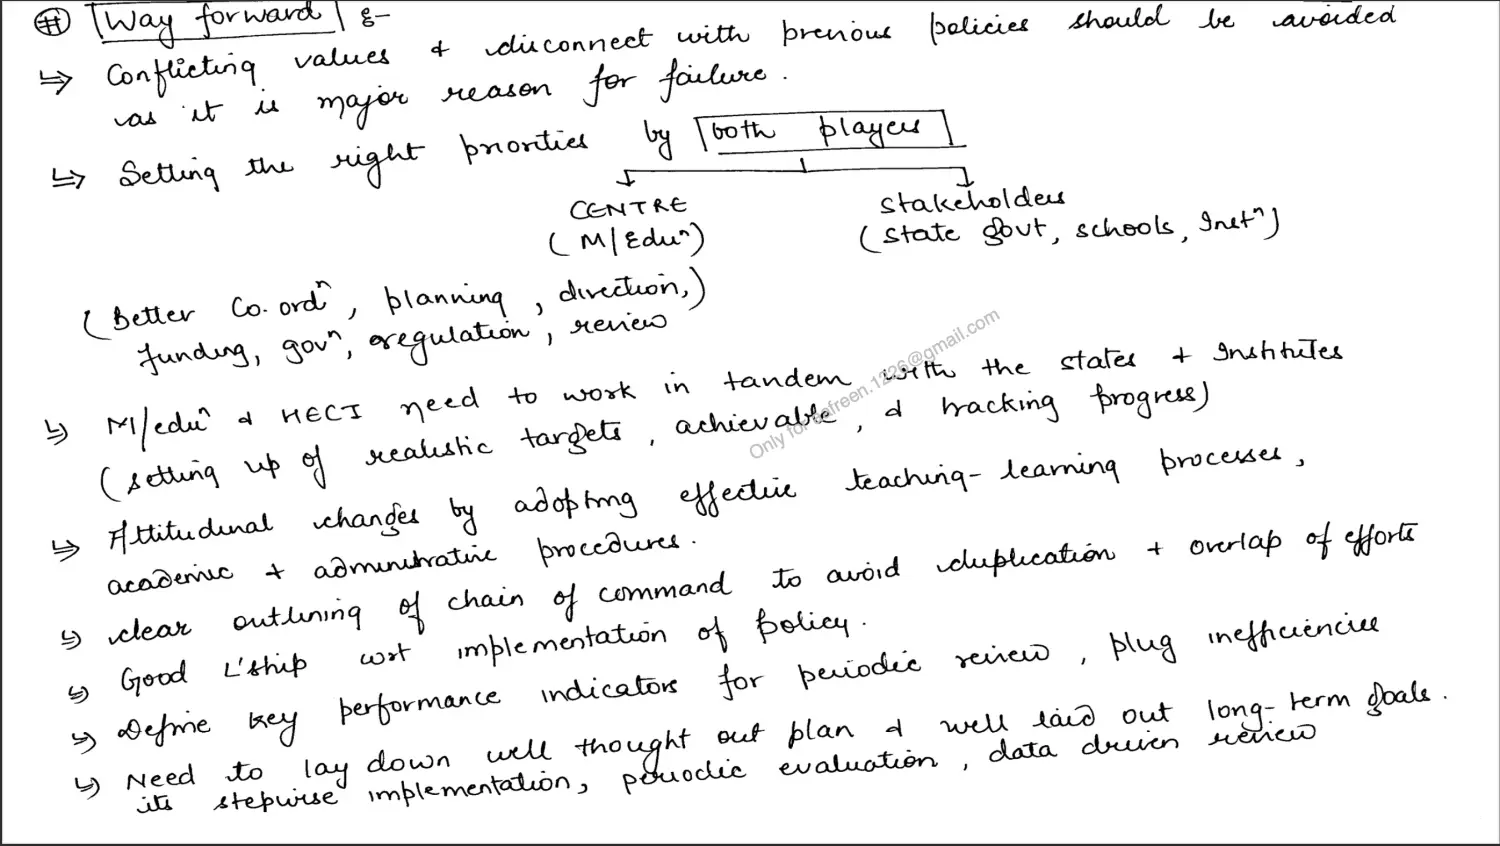 # Way forward :-
↳ Conflicting values & disconnect with previous policies should be avoided
as it is major reason for failure.
↳ Setting the right priorities by both players
CENTRE Stakeholders
(M/Eduⁿ) (State govt, schools, Instⁿ)
(Better Co. ordⁿ, planning, direction,)
funding, govⁿ, regulation, review
↳ M/eduⁿ & HECI need to work in tandem with the states + Institutes
(setting up of realistic targets, achievable, & tracking progress)
↳ Attitudinal changes by adopting effective teaching-learning processes,
academic + administrative procedures.
↳ clear outlining of chain of command to avoid duplication + overlap of efforts
↳ Good L'ship wrt implementation of policy.
↳ Define key performance indicators for periodic review, plug inefficiencies
↳ Need to lay down well thought out plan & well laid out long-term goals.
its stepwise implementation, periodic evaluation, data driven review